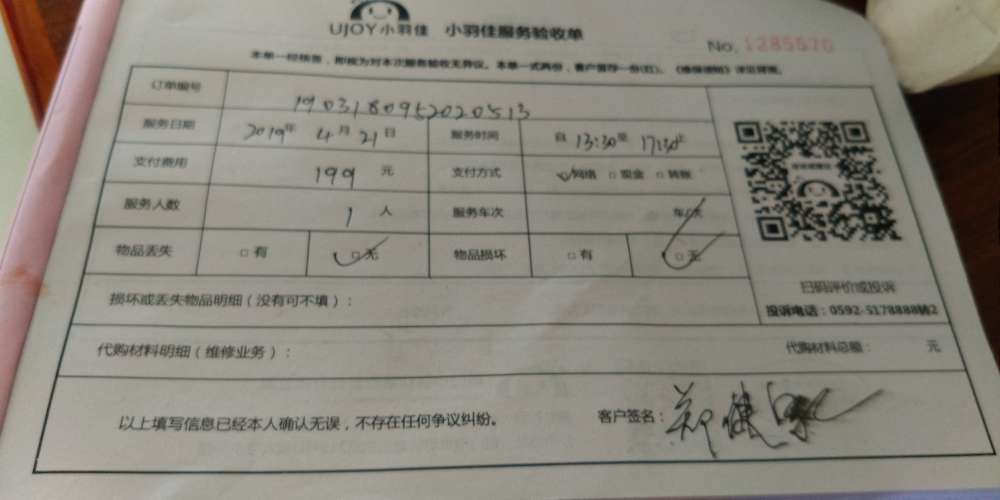 UJOY小羽佳 小羽佳服务验收单
No. 1285570
本单一经核签，即视为对本次服务验收无异议。本单一式两份，客户留存一份(红)。《维保须知》详见背面。
订单编号 1903180952020513
服务日期 2019年4月21日 服务时间 自13:30至17:30止
支付费用 199元 支付方式 网络 □现金 □转账
服务人数 1人 服务车次 车/次
物品丢失 □有 □无 物品损坏 □有 □无
损坏或丢失物品明细（没有可不填）：
扫码评价或投诉
投诉电话：0592-5178888转2
代购材料明细（维修业务）： 代购材料总额： 元
以上填写信息已经本人确认无误，不存在任何争议纠纷。 客户签名：郑